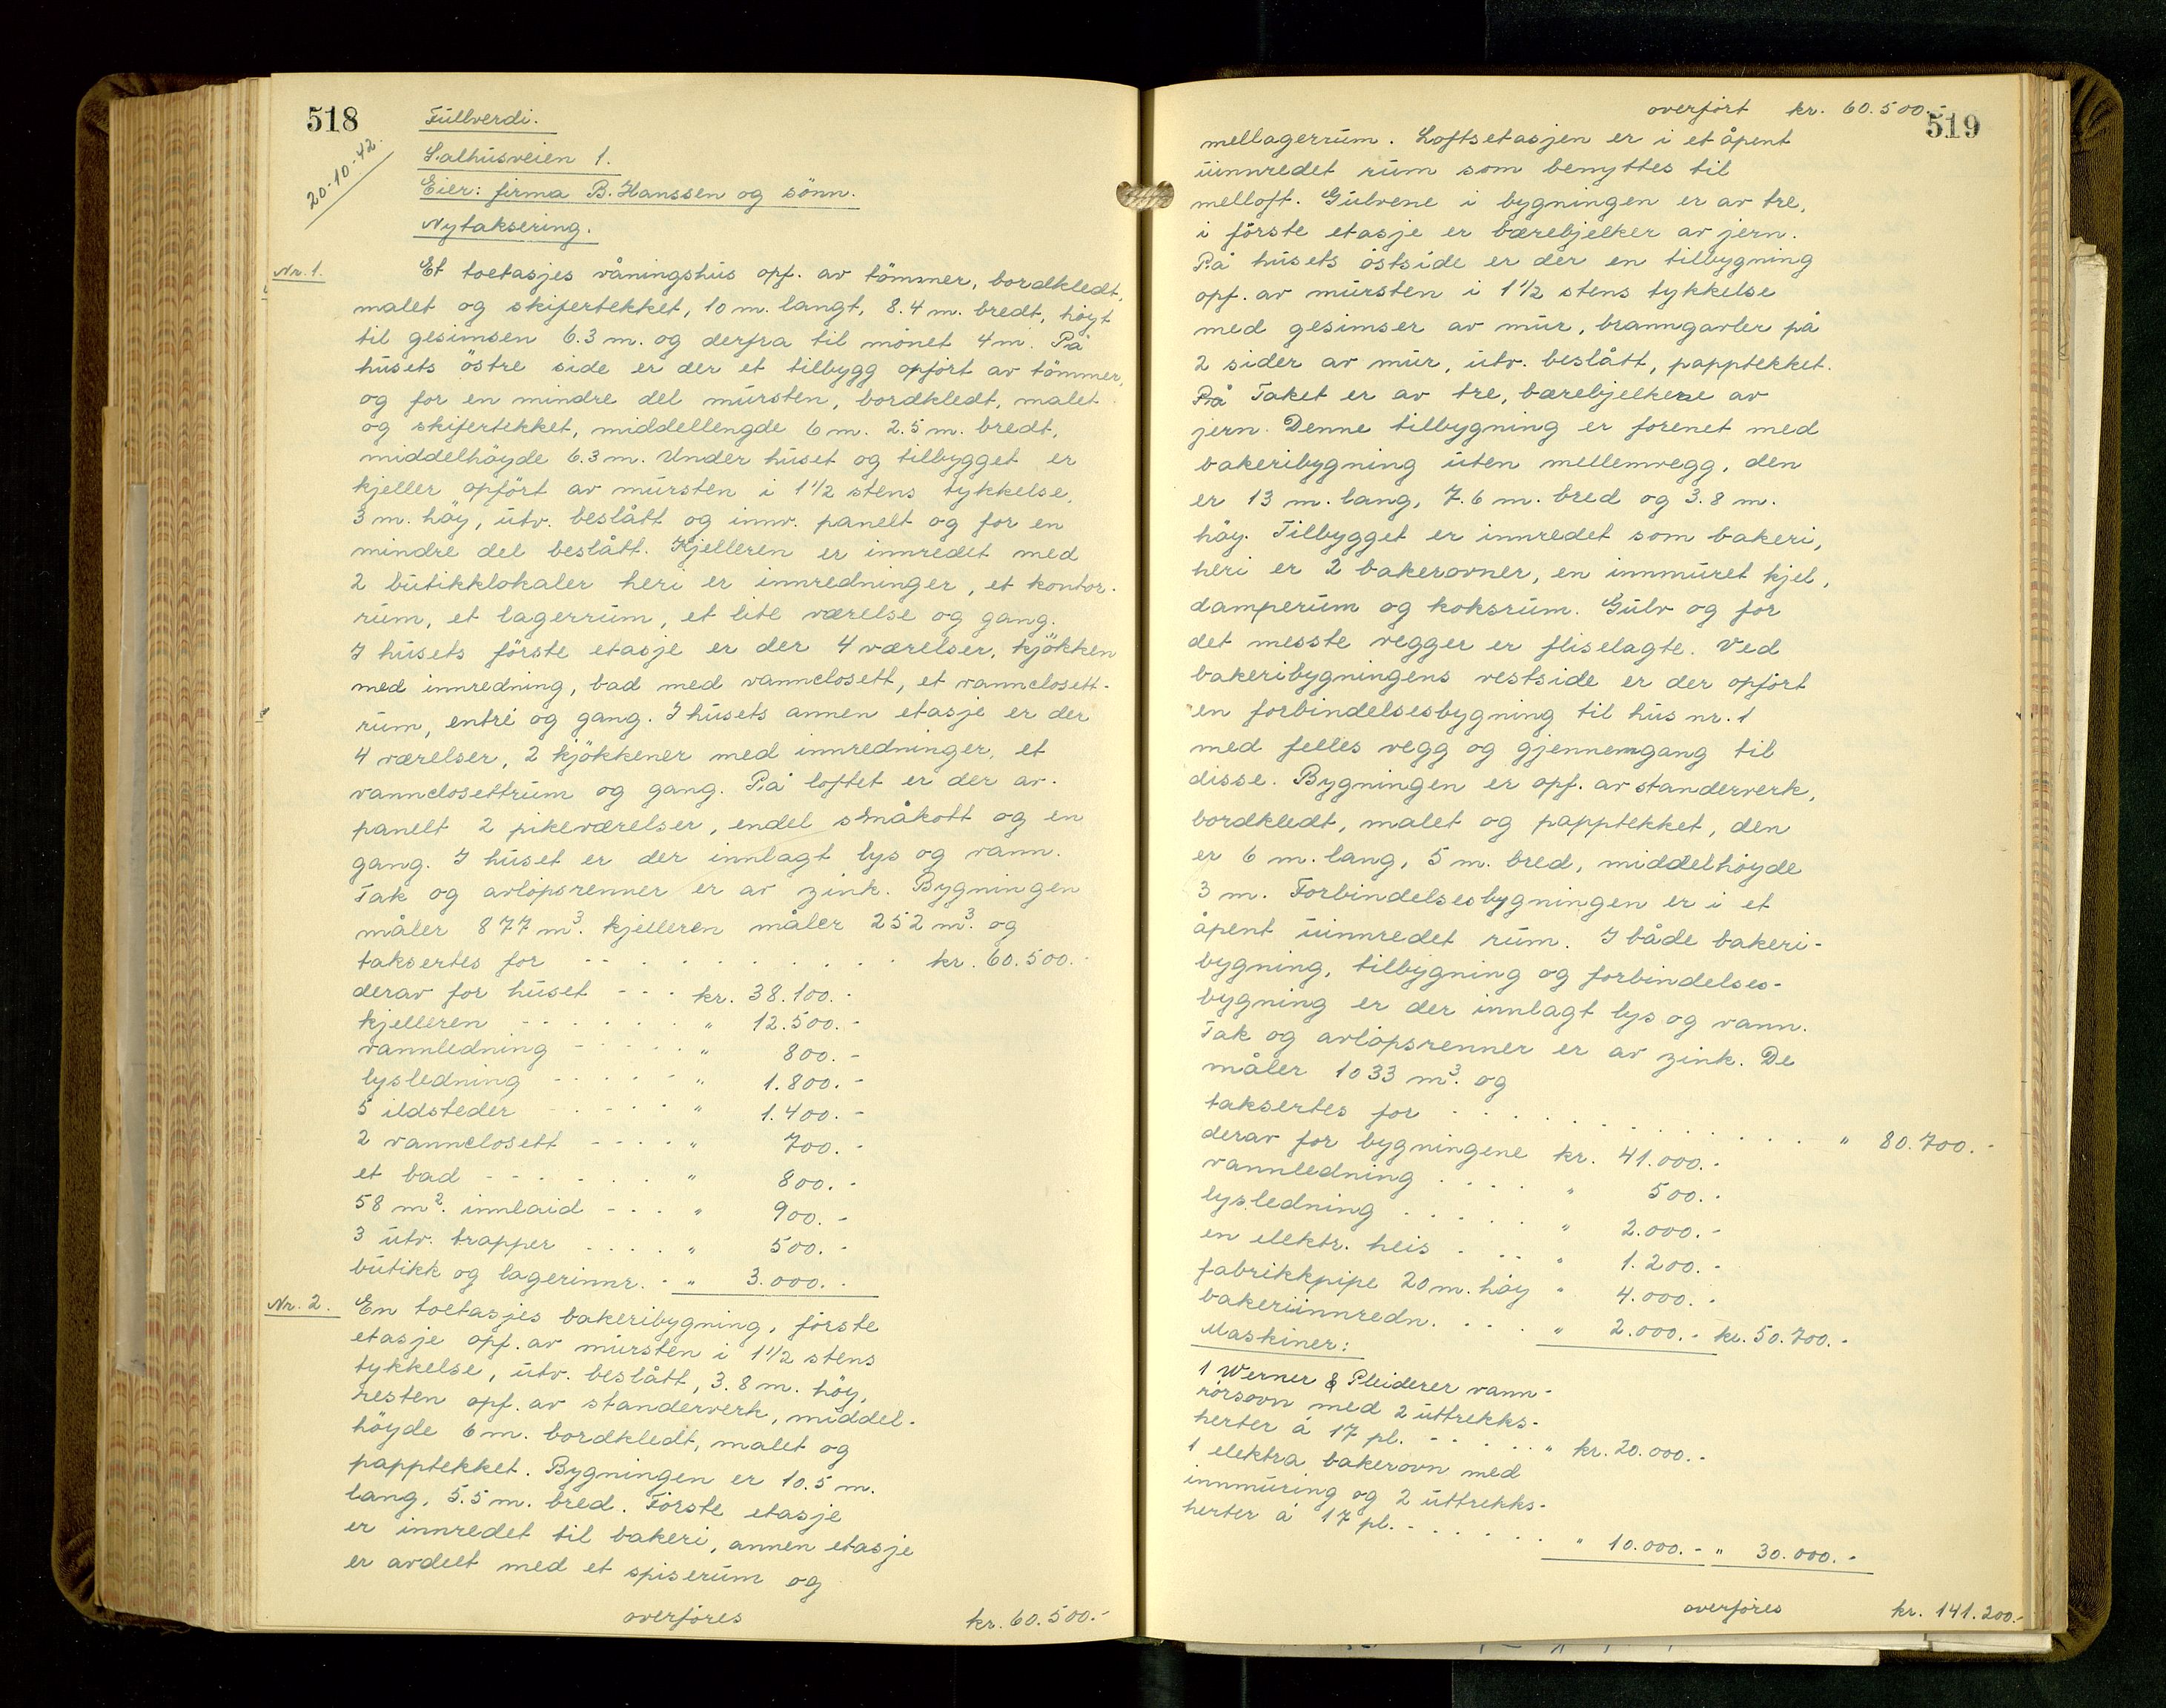 518
20-10-42.
Fullverdi.
Salhusveien 1.
Eier: firma B. Hanssen og sönn.
Nytaksering.
Nr. 1.
Et toetasjes våningshus opf. av tömmer, bordkledt,
malet og skifertekket, 10 m. langt, 8.4 m. bredt, höyt
til gesimsen 6.3 m. og derfra til mönet 4 m. På
husets östre side er der et tilbygg opfört av tömmer,
og for en mindre del mursten, bordkledt, malet
og skifertekket, middellengde 6 m. 2.5 m. bredt,
middelhöyde 6.3 m. Under huset og tilbygget er
kjeller opfört av mursten i 1 1/2 stens tykkelse,
3 m. höy, utv. beslått og innv. panelt og for en
mindre del beslått. Kjelleren er innredet med
2 butikklokaler heri er innredninger, et kontor-
rum, et lagerrum, et lite værelse og gang.
I husets förste etasje er der 4 værelser, kjökken
med innredning, bad med vannclosett, et vannclosett-
rum, entré og gang. I husets annen etasje er der
4 værelser, 2 kjökkener med innredninger, et
vannclosettrum og gang. På loftet er der av-
panelt 2 pikeværelser, endel småkott og en
gang. I huset er der innlagt lys og vann.
Tak og avlöpsrenner er av zink. Bygningen
måler 877 m³. kjelleren måler 252 m³. og
taksertes for - - - - - - - - - - kr. 60.500.-
derav for huset - - - kr. 38.100.-
kjelleren - - - - - - " 12.500.-
vannledning - - - - - " 800.-
lysledning - - - - - " 1.800.-
5 ildsteder - - - - - " 1.400.-
2 vannclosett - - - - " 700.-
et bad - - - - - - " 800.-
58 m². innlaid - - - " 900.-
3 utv. trapper - - - - " 500.-
butikk og lagerinnr. - " 3.000.-
Nr. 2.
En toetasjes bakeribygning, förste
etasje opf. av mursten i 1 1/2 stens
tykkelse, utv. beslått, 3.8 m. höy,
resten opf. av standerverk, middel-
höyde 6 m. bordkledt, malet og
papptekket. Bygningen er 10.5 m.
lang, 5.5 m. bred. Förste etasje
er innredet til bakeri, annen etasje
er avdelt med et spiserum og
overföres kr. 60.500.-
overfört kr. 60.500.-
519
mellagerrum. Loftsetasjen er i et åpent
uinnredet rum som benyttes til
melloft. Gulvene i bygningen er av tre,
i förste etasje er bærebjelker av jern.
På husets östside er der en tilbygning
opf. av mursten i 1 1/2 stens tykkelse
med gesimser av mur, branngavler på
2 sider av mur, utv. beslått, papptekket.
På Taket er av tre, bærebjelkene av
jern. Denne tilbygning er forenet med
bakeribygning uten mellemvegg, den
er 13 m. lang, 7.6 m. bred og 3.8 m.
höy. Tilbygget er innredet som bakeri,
heri er 2 bakerovner, en innmuret kjel,
damperum og koksrum. Gulv og for
det messte vegger er fliselagte. Ved
bakeribygningens vestside er der opfört
en forbindelsesbygning til hus nr. 1
med felles vegg og gjennemgang til
disse. Bygningen er opf. av standerverk,
bordkledt, malet og papptekket, den
er 6 m. lang, 5 m. bred, middelhöyde
3 m. Forbindelsesbygningen er i et
åpent uinnredet rum. I både bakeri-
bygning, tilbygning og forbindelses-
bygning er der innlagt lys og vann.
Tak og avlöpsrenner er av zink. De
måler 1033 m³. og
taksertes for - - - - - - - - - - " 80.700.-
derav for bygningene kr. 41.000.-
vannledning - - - - " 500.-
lysledning - - - - - " 2.000.-
en elektr. heis - - - " 1.200.-
fabrikkpipe 20 m. höy " 4.000.-
bakeriinnredn. - - - " 2.000.- kr. 50.700.-
Maskiner:
1 Werner & Pleiderer vann-
rörsovn med 2 uttrekks-
herter á 17 pl. - - - - - " kr. 20.000.-
1 elektra bakerovn med
innmuring og 2 uttrekks-
herter á 17 pl. - - - - - - " 10.000.- " 30.000.-
overföres kr. 141.200.-